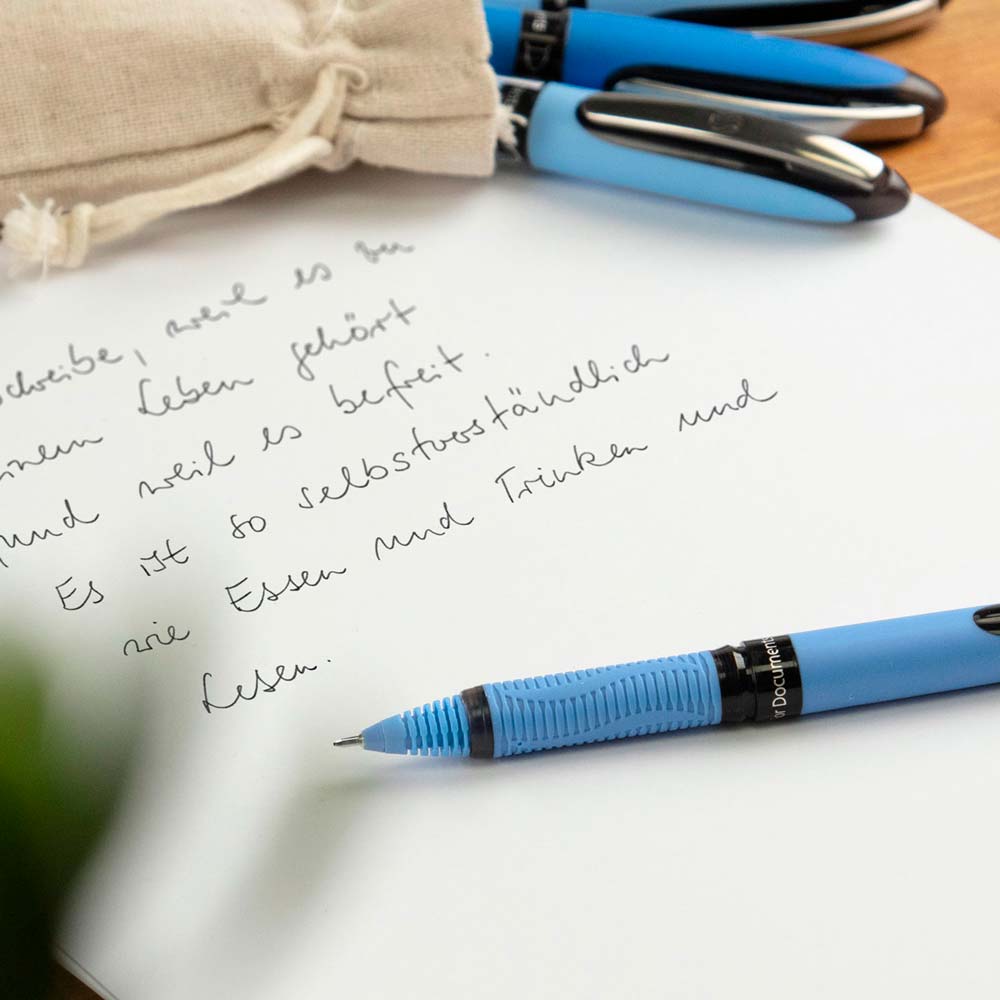 schreibe, weil es zu
einem Leben gehört
und weil es befreit.
Es ist so selbstverständlich
wie Essen und Trinken und
Lesen.
or Documents